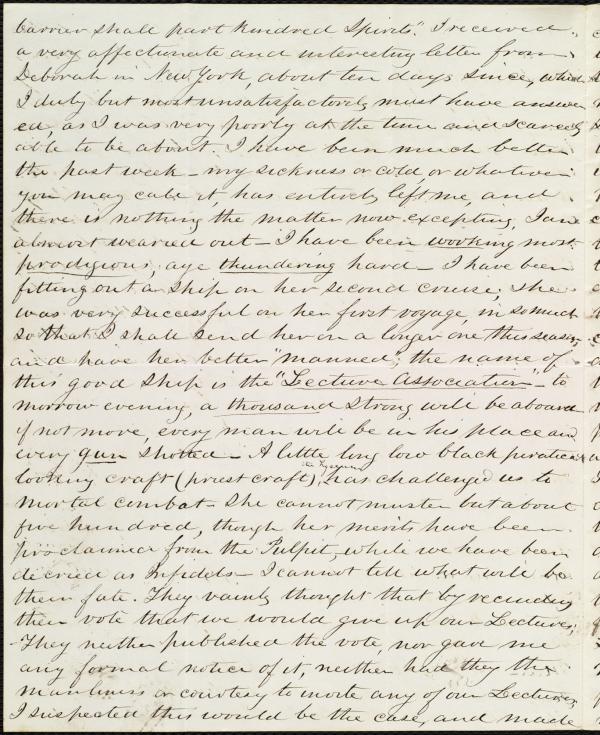 barrier shall part kindred Spirits." I received
a very affectionate and interesting letter from
Deborah in New York, about ten days since, which
I duly but most unsatisfactorily must have answer
ed, as I was very poorly at the time and scarcely
able to be about. I have been much better
the past week - my sickness or cold, or whatever
you may call it, has entirely left me, and
there is nothing the matter now excepting, I am
almost wearied out - I have been working most
prodigious, aye thundering hard - I have been
fitting out a ship on her second cruise; she
was very successful on her first voyage, in so much
so that I shall send her on a longer one this season,
and have her better "manned"; the name of
this good ship is the "Lecture Association" - to
morrow evening, a thousand strong will be aboard
if not more, every man will be in his place and
every gun shotted - A little long low black piratical
looking craft (priest craft), the has challenged us to
mortal combat - She cannot muster but about
five hundred, though her merits have been
proclaimed from the Pulpit, while we have been
decried as Infidels - I cannot tell what will be
their fate. They vainly thought that by rescinding
their vote that we would give up our Lectures,
- They neither published the vote, nor gave me
any formal notice of it, neither had they the
manliness or courtesy to invite any of our Lecturers
I suspected this would be the case, and made